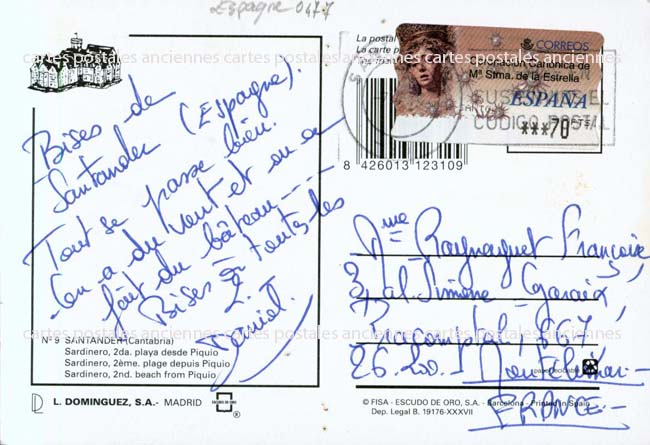 Espagne 0477
cartes postales anciennes cartes postales anciennes cartes postales anciennes
Bises de
Santander (Espagne).
Tout se passe bien.
On a du vent et on a
fait du bâteau ----
Bises à toutes les
2.
Nº 9 SANTANDER (Cantabria)
Sardinero, 2da. playa desde Piquio
Sardinero, 2ème. plage depuis Piquio
Sardinero, 2nd. beach from Piquio
L. DOMINGUEZ, S.A.- MADRID
ESCUDO DE ORO
®
La postal
La carte p
CORREOS
Coronación Canónica de
Mª Stma. de la Estrella
ESPAÑA
***70 PTS
CODIGO POSTAL
8 426013 123109
Mme Françoise
3, al. Simone
B.P.
26200. Montélimar -
FRANCE -
© FISA - ESCUDO DE ORO, S.A. - Barcelona - Printed in Spain
Dep. Legal B. 19176-XXXVII
cartes postales anciennes cartes postales anciennes cartes postales anciennes